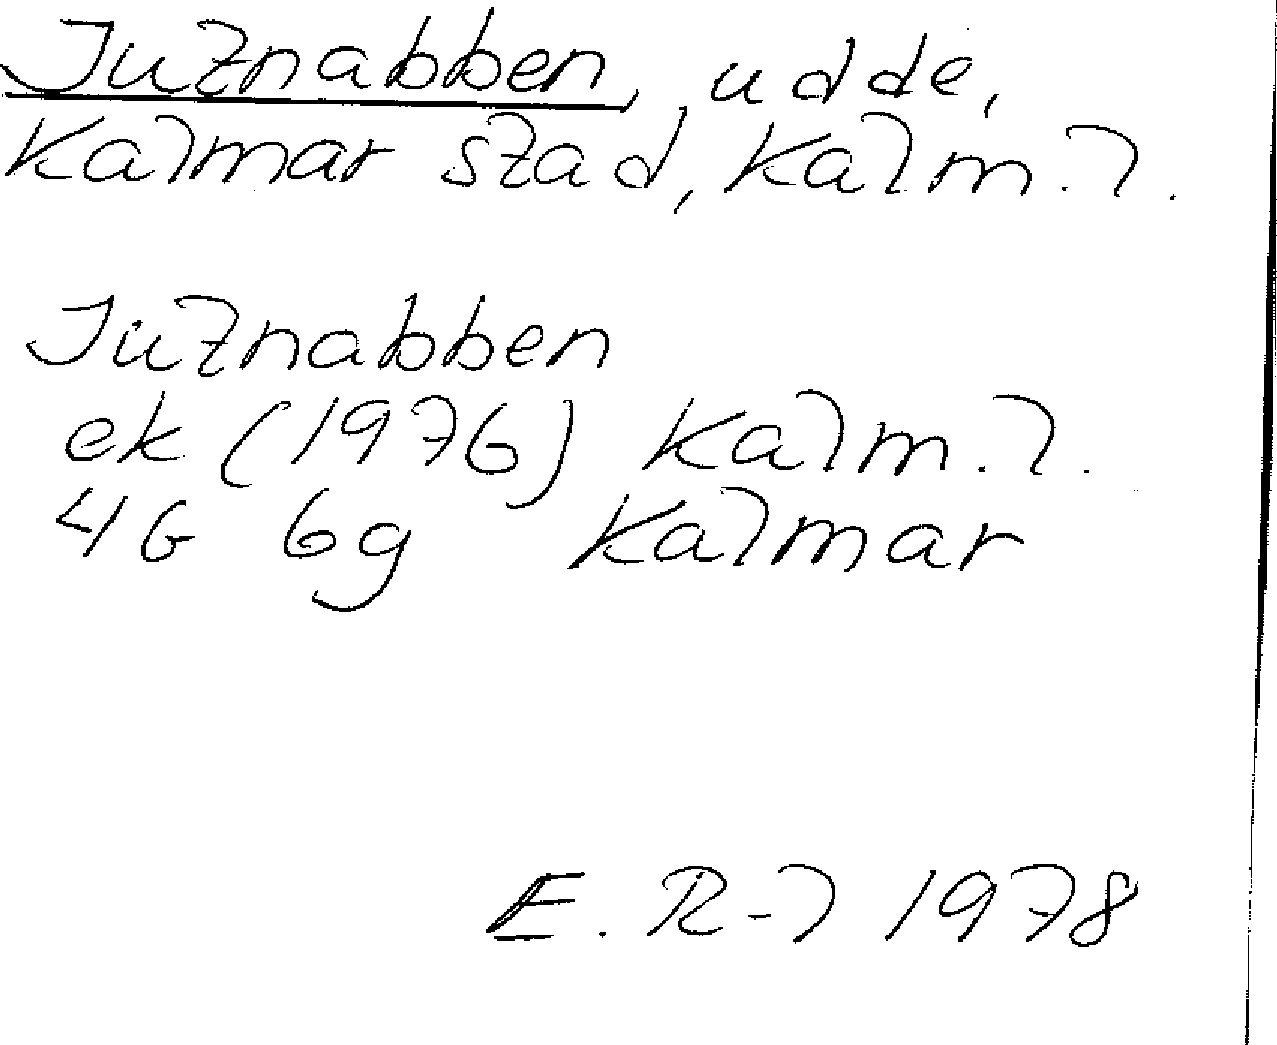 Jutnabben, udde,
Kalmar stad, Kalm. l.
Jutnabben
ek (1976) Kalm. l.
4G 6g Kalmar
E. R-l 1978